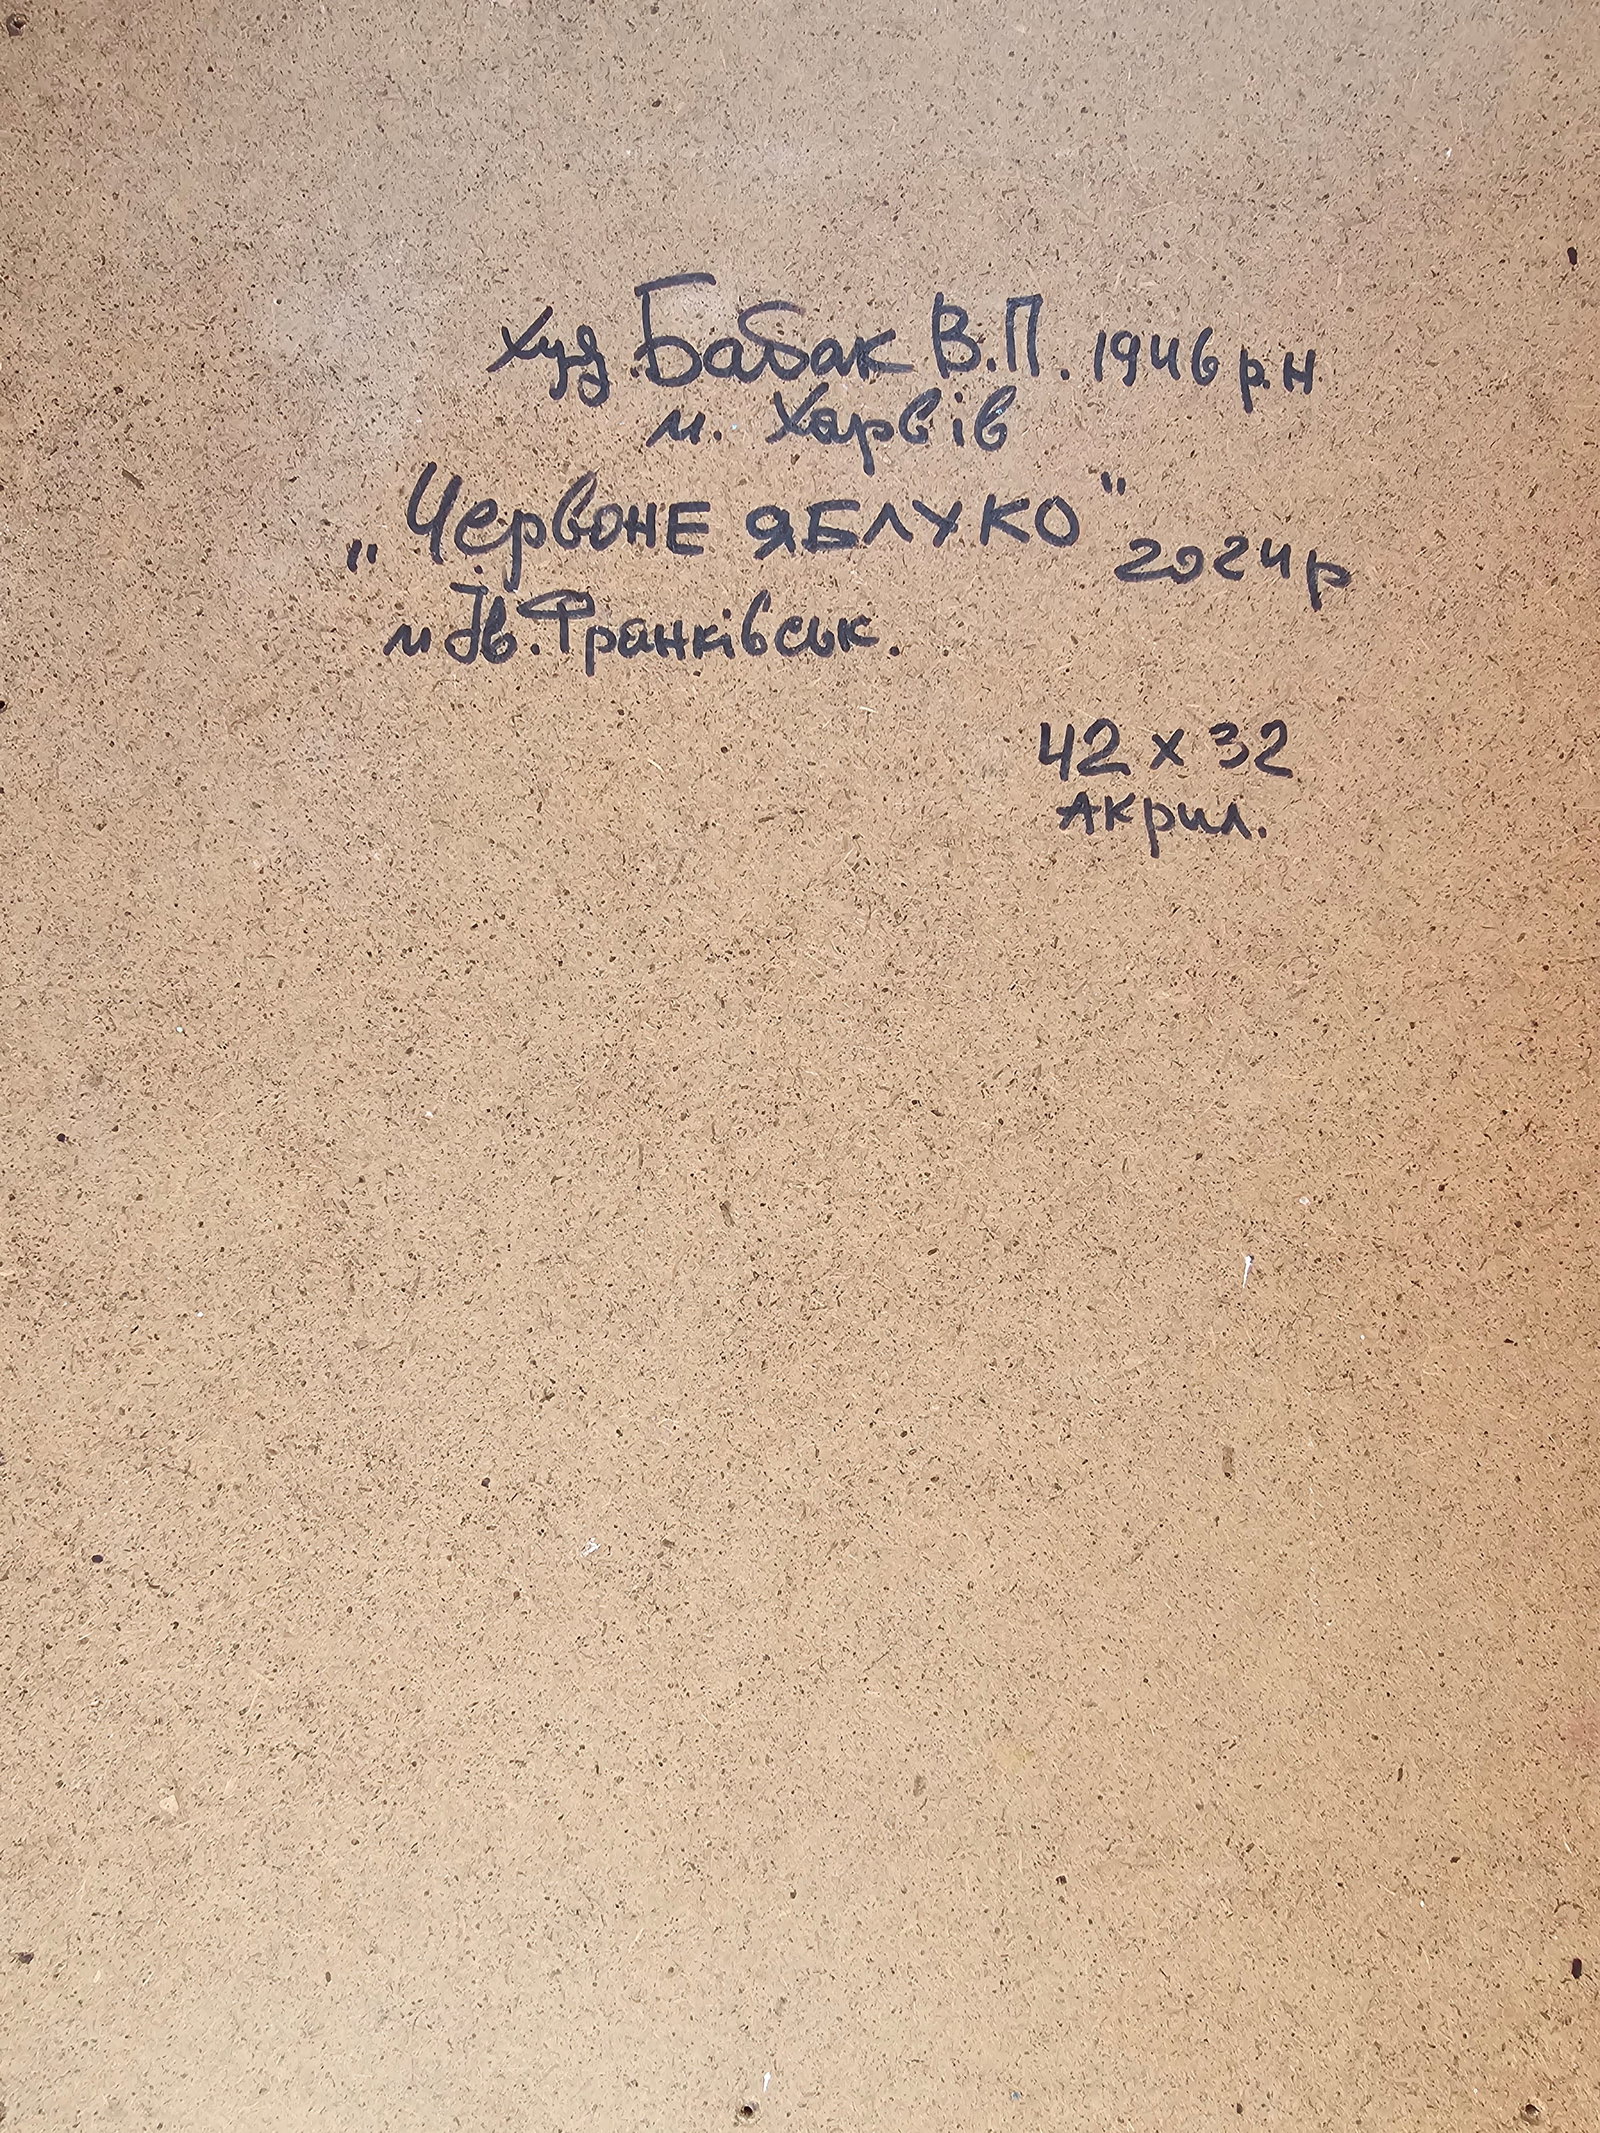 Худ. Бабак В.П. 1946 р.н
м. Харвів
„Червоне яблуко" 2024р
м Ів. Франківськ.
42 x 32
Акрил.